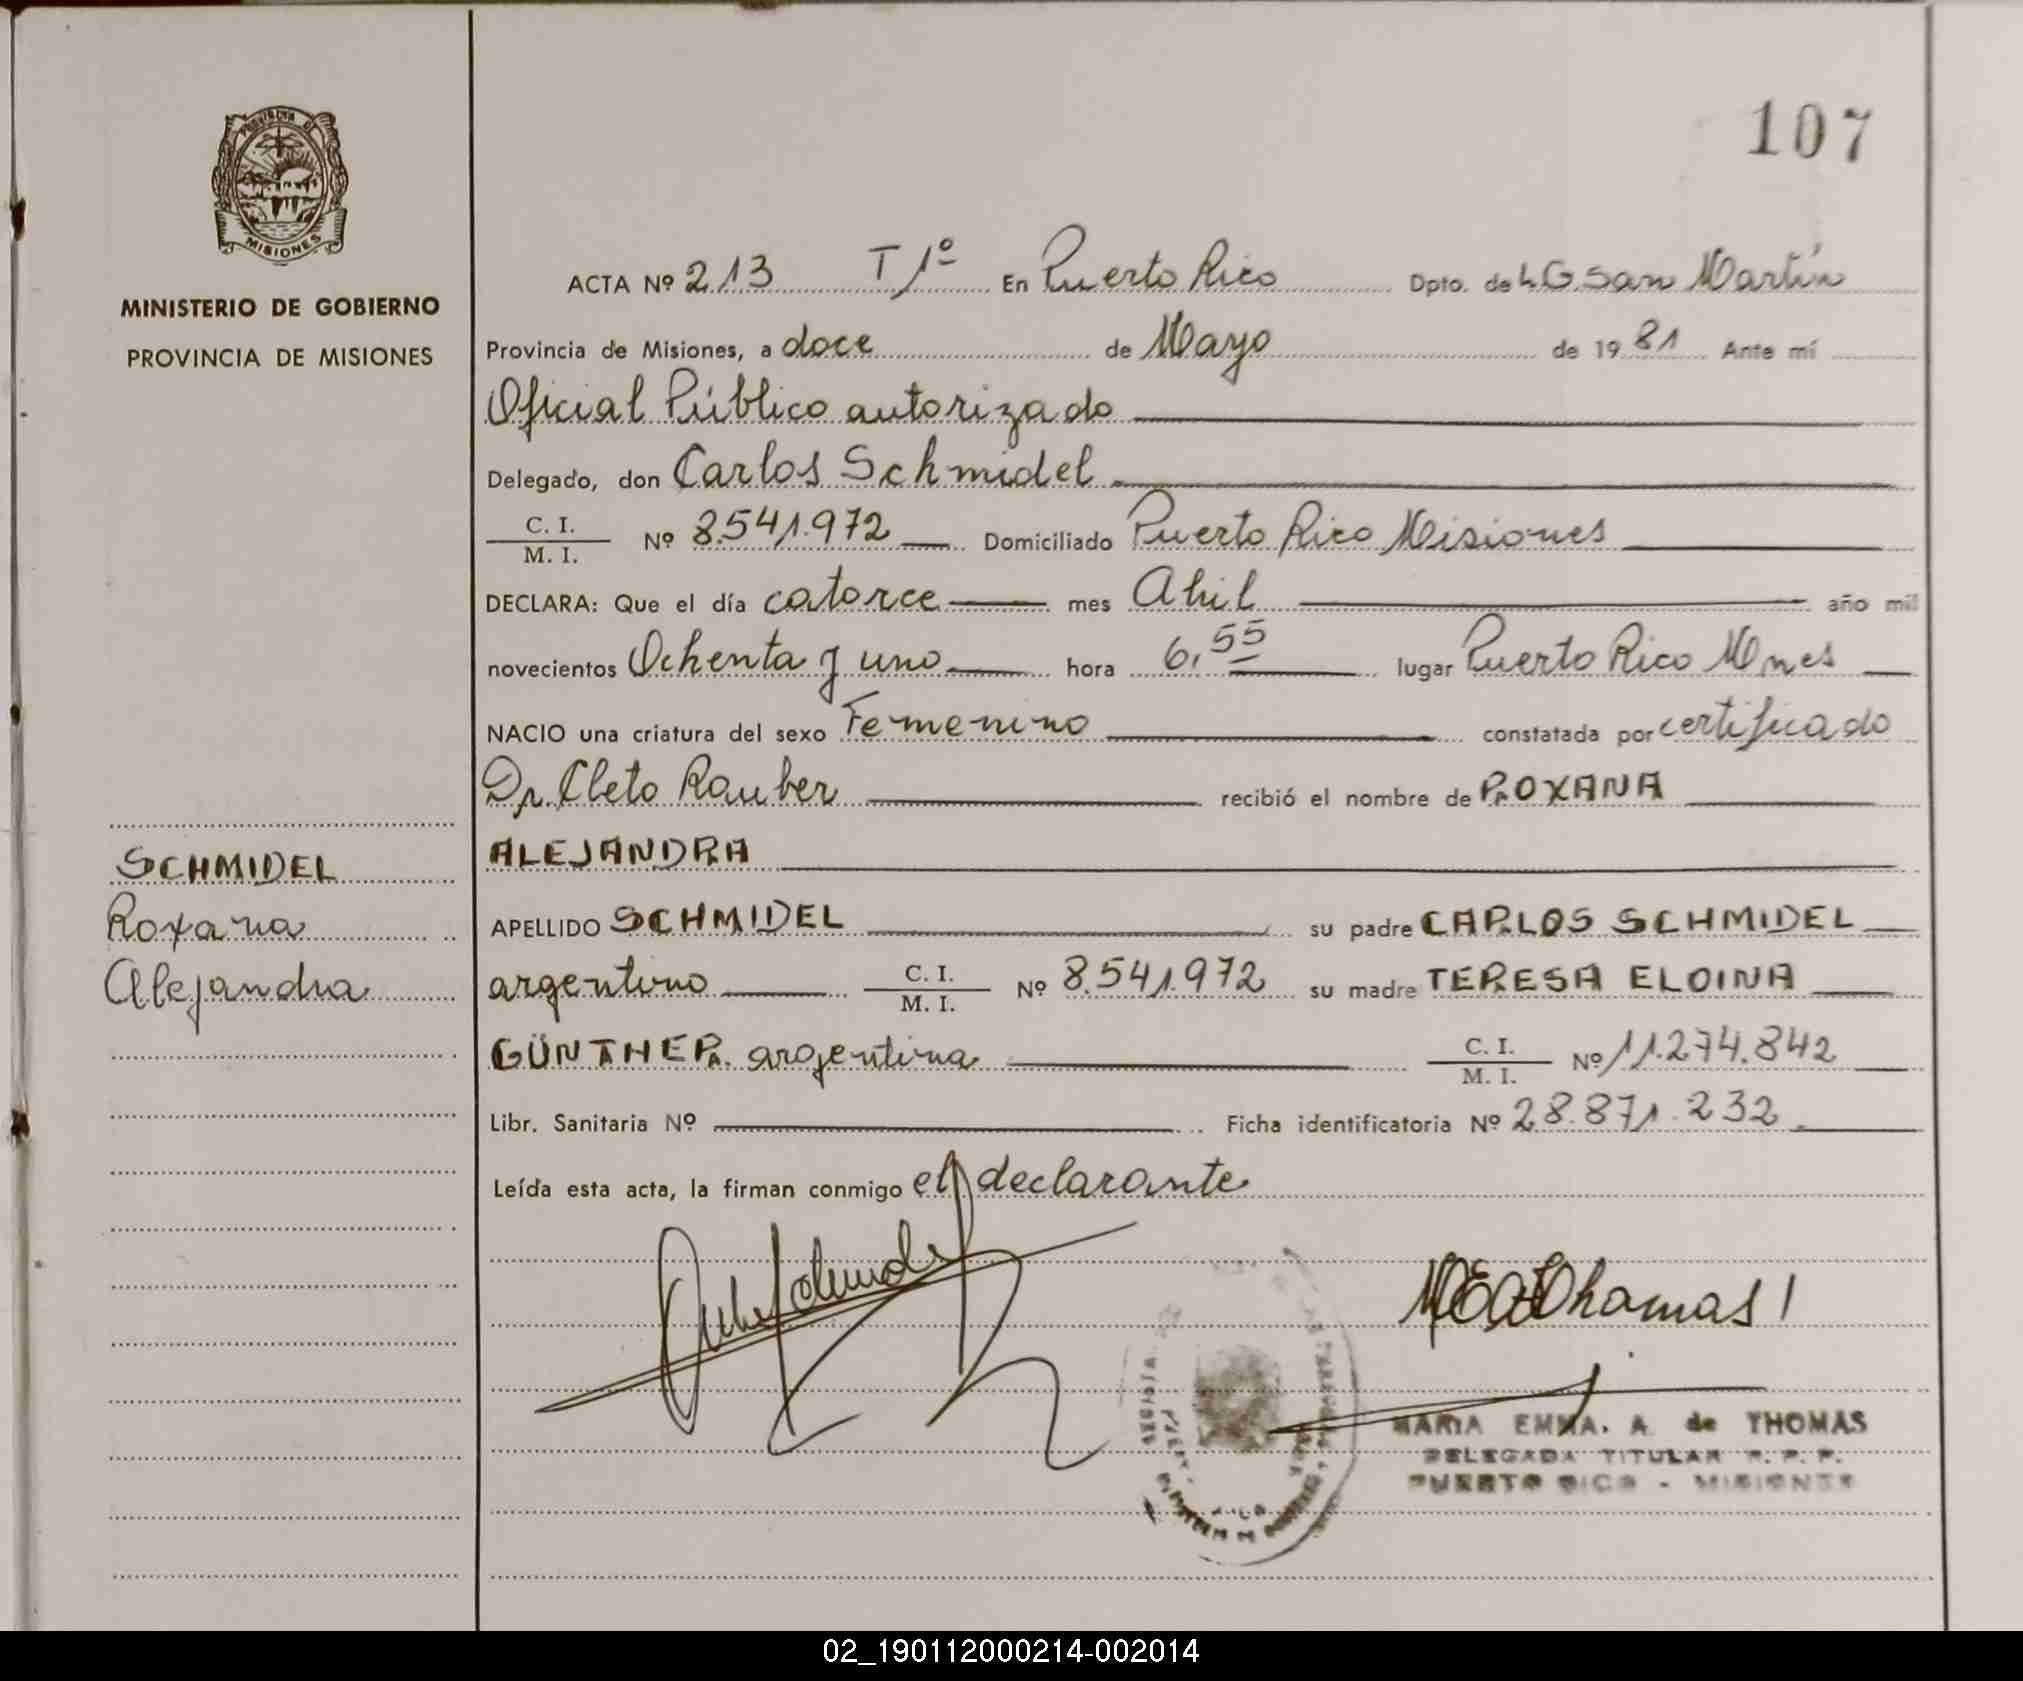 107
PROVINCIA DE
MISIONES
MINISTERIO DE GOBIERNO
PROVINCIA DE MISIONES
SCHMIDEL
Roxana
Alejandra
ACTA Nº 213 T 1º En Puerto Rico Dpto. de L.G.San Martín
Provincia de Misiones, a doce de Mayo de 1981 Ante mí
Oficial Público autorizado
Delegado, don Carlos Schmidel
C. I. / M. I. Nº 8.541.972 Domiciliado Puerto Rico Misiones
DECLARA: Que el día catorce mes Abril año mil
novecientos Ochenta y uno hora 6,55 lugar Puerto Rico Mnes
NACIO una criatura del sexo Femenino constatada por certificado
Dr. Cleto Rauber recibió el nombre de ROXANA
ALEJANDRA
APELLIDO SCHMIDEL su padre CARLOS SCHMIDEL
argentino C. I. / M. I. Nº 8.541.972 su madre TERESA ELOINA
GÜNTHER argentina C. I. / M. I. Nº 11.274.842
Libr. Sanitaria Nº Ficha identificatoria Nº 28.871.232
Leída esta acta, la firman conmigo el declarante
MARIA EMMA. A. de THOMAS
DELEGADA TITULAR R. P. P.
PUERTO RICO - MISIONES
02_190112000214-002014